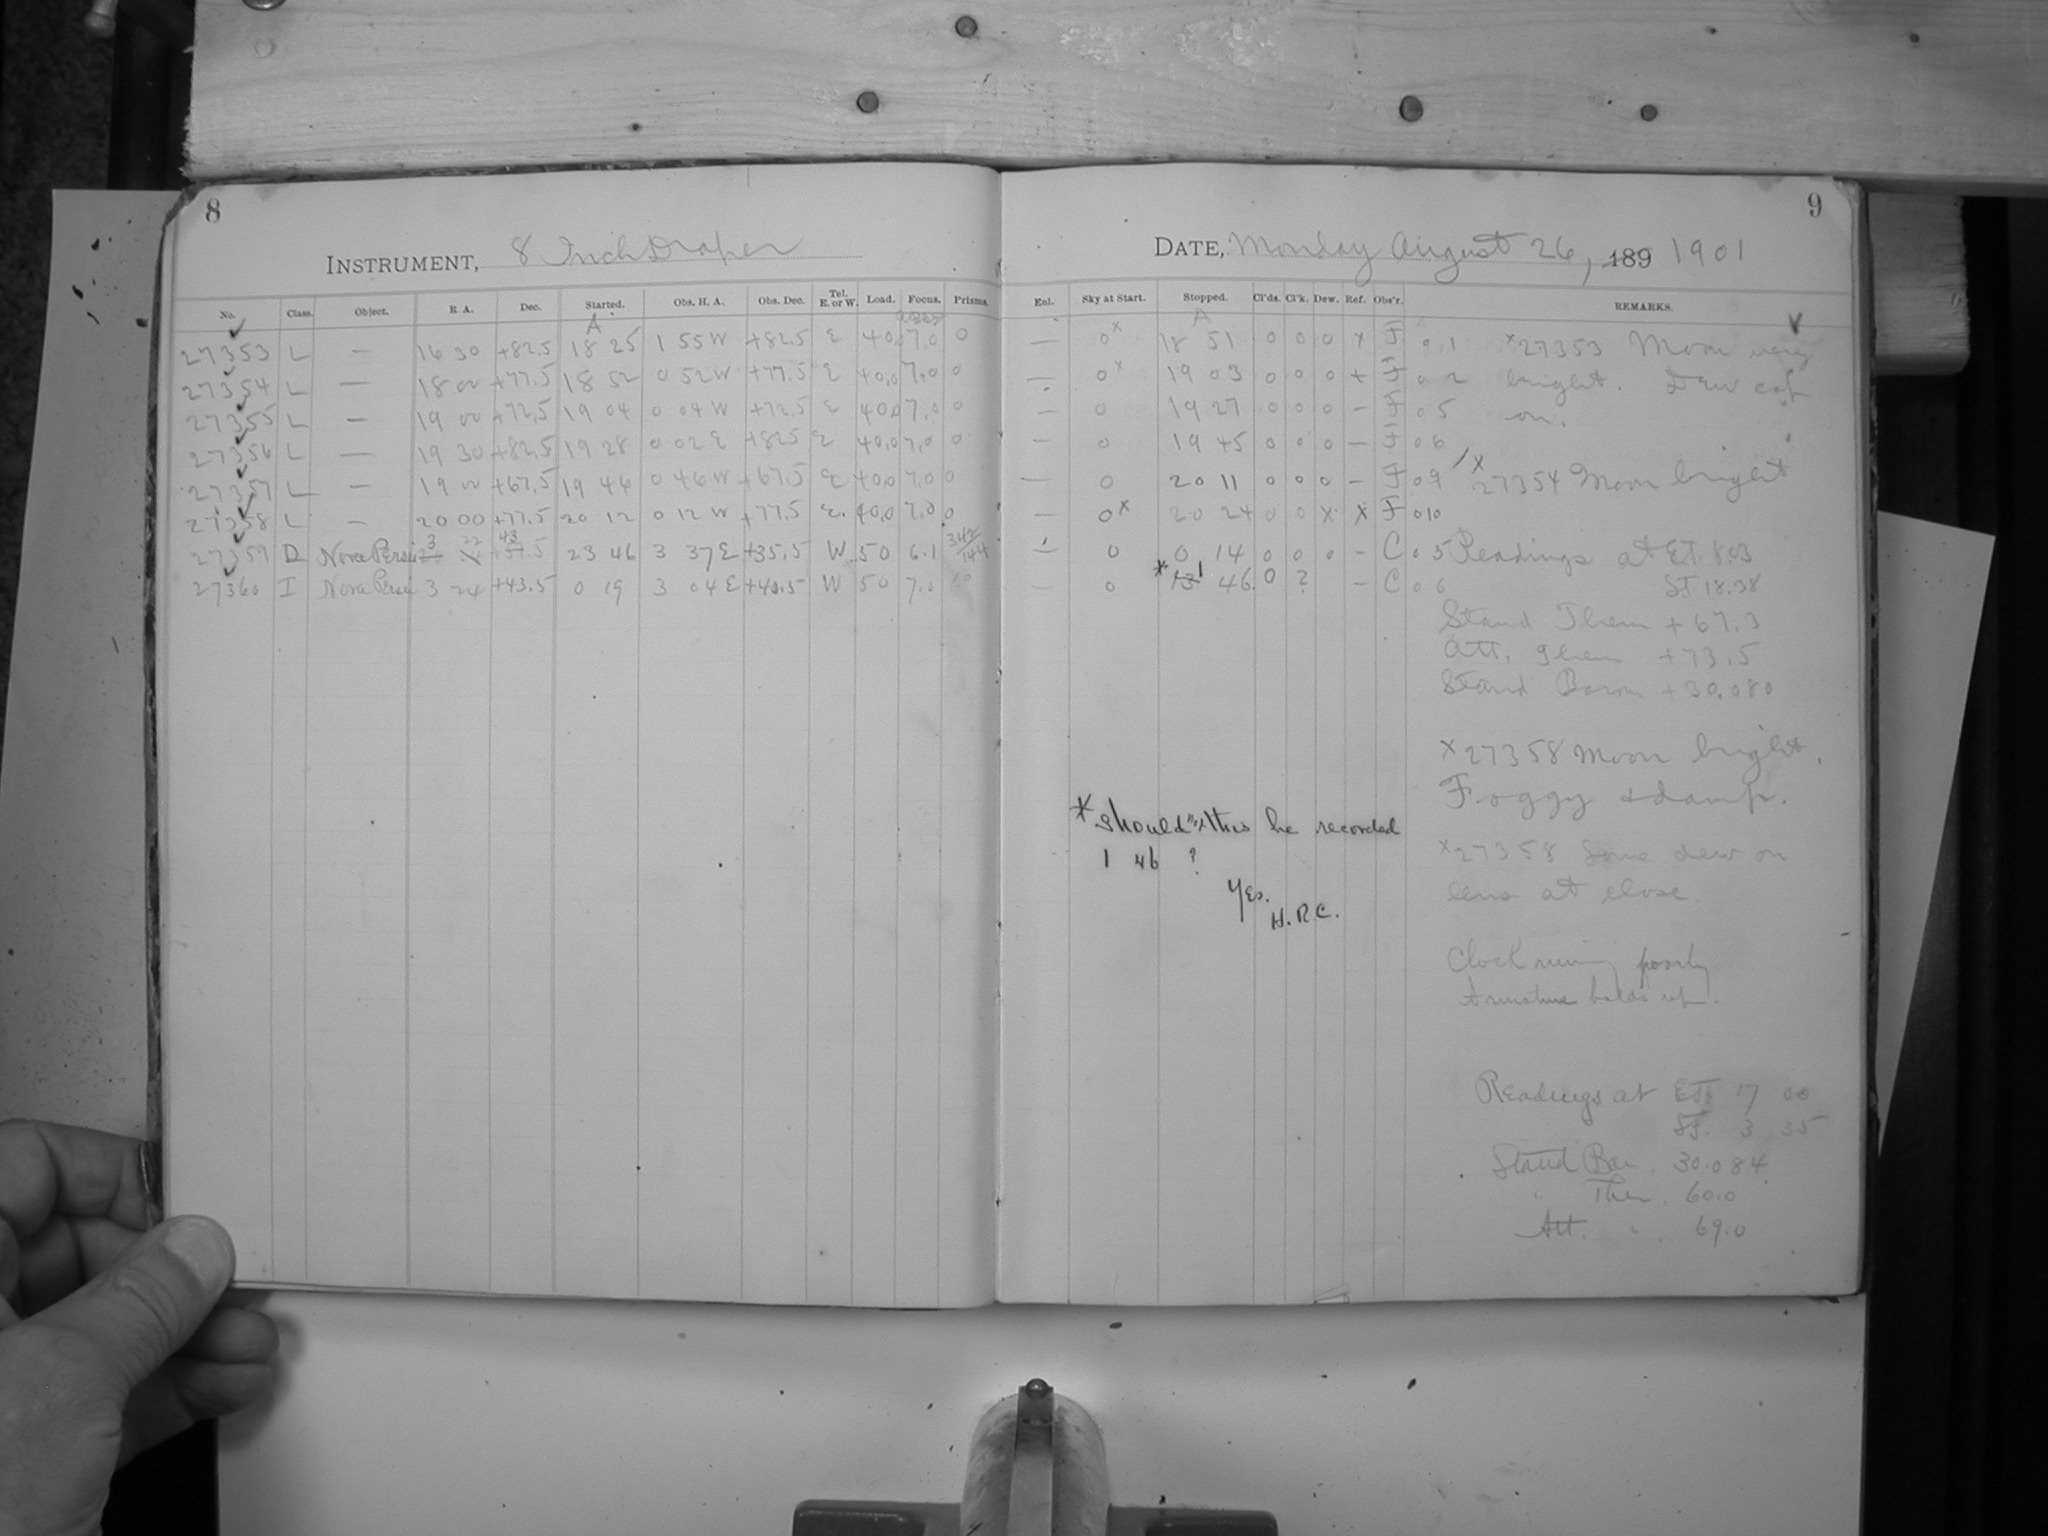 8
INSTRUMENT, 8 Inch Draper
No. Class. Object. R. A. Dec. Started. Obs. H. A. Obs. Dec. Tel. E. or W. Load. Focus. Prisms.
A
27353 L — 16 30 +82.5 18 25 1 55 W +82.5 E 40.0 7.0 0
27354 L — 18 00 +77.5 18 52 0 52 W +77.5 E 40.0 7.0 0
27355 L — 19 00 +72.5 19 04 0 04 W +72.5 E 40.0 7.0 0
27356 L — 19 30 +82.5 19 28 0 02 E +82.5 E 40.0 7.0 0
27357 L — 19 00 +67.5 19 46 0 46 W +67.5 E 40.0 7.0 0
27358 L — 20 00 +77.5 20 12 0 12 W +77.5 E. 40.0 7.0 0
27359 D Nova Persei 3 22 43 23 46 3 37 E +35.5 W 50 6.1
27360 I Nova Persei 3 24 +43.5 0 19 3 04 E +40.5 W 50 7.0
9
DATE, Monday August 26, 189 1901
Enl. Sky at Start. Stopped. Cl'ds. Cl'k. Dew. Ref. Obs'r. REMARKS.
A
— 0x 18 51 0 0 0 x F 0.1
— 0x 19 03 0 0 0 + F 0 2
— 0 19 27 0 0 0 – F 0 5
— 0 19 45 0 0 0 – F 0 6
— 0 20 11 0 0 0 – F 0 9
— 0x 20 24 0 0 x x F 0 10
— 0 0 14 0 0 0 – C 0 5
— 0 *13 1 46 0 ? – C 0 6
x27353 Moon very
bright. Dew cap
on.
x 27354 Moon bright
Readings at ET. 8.03
ST. 18.38
Stand Therm +67.3
Att. Them +73.5
Stand Barom +30.080
x27358 Moon bright.
Foggy & damp.
x27358 Some dew on
lens at close.
Clock running poorly
Armature holds up.
Readings at ET. 17 00
ST. 3 35
Stand Bar. 30.084
" Ther. 60.0
Att. " 69.0
*Should n't this be recorded
1 46 ?
Yes.
H.R.C.